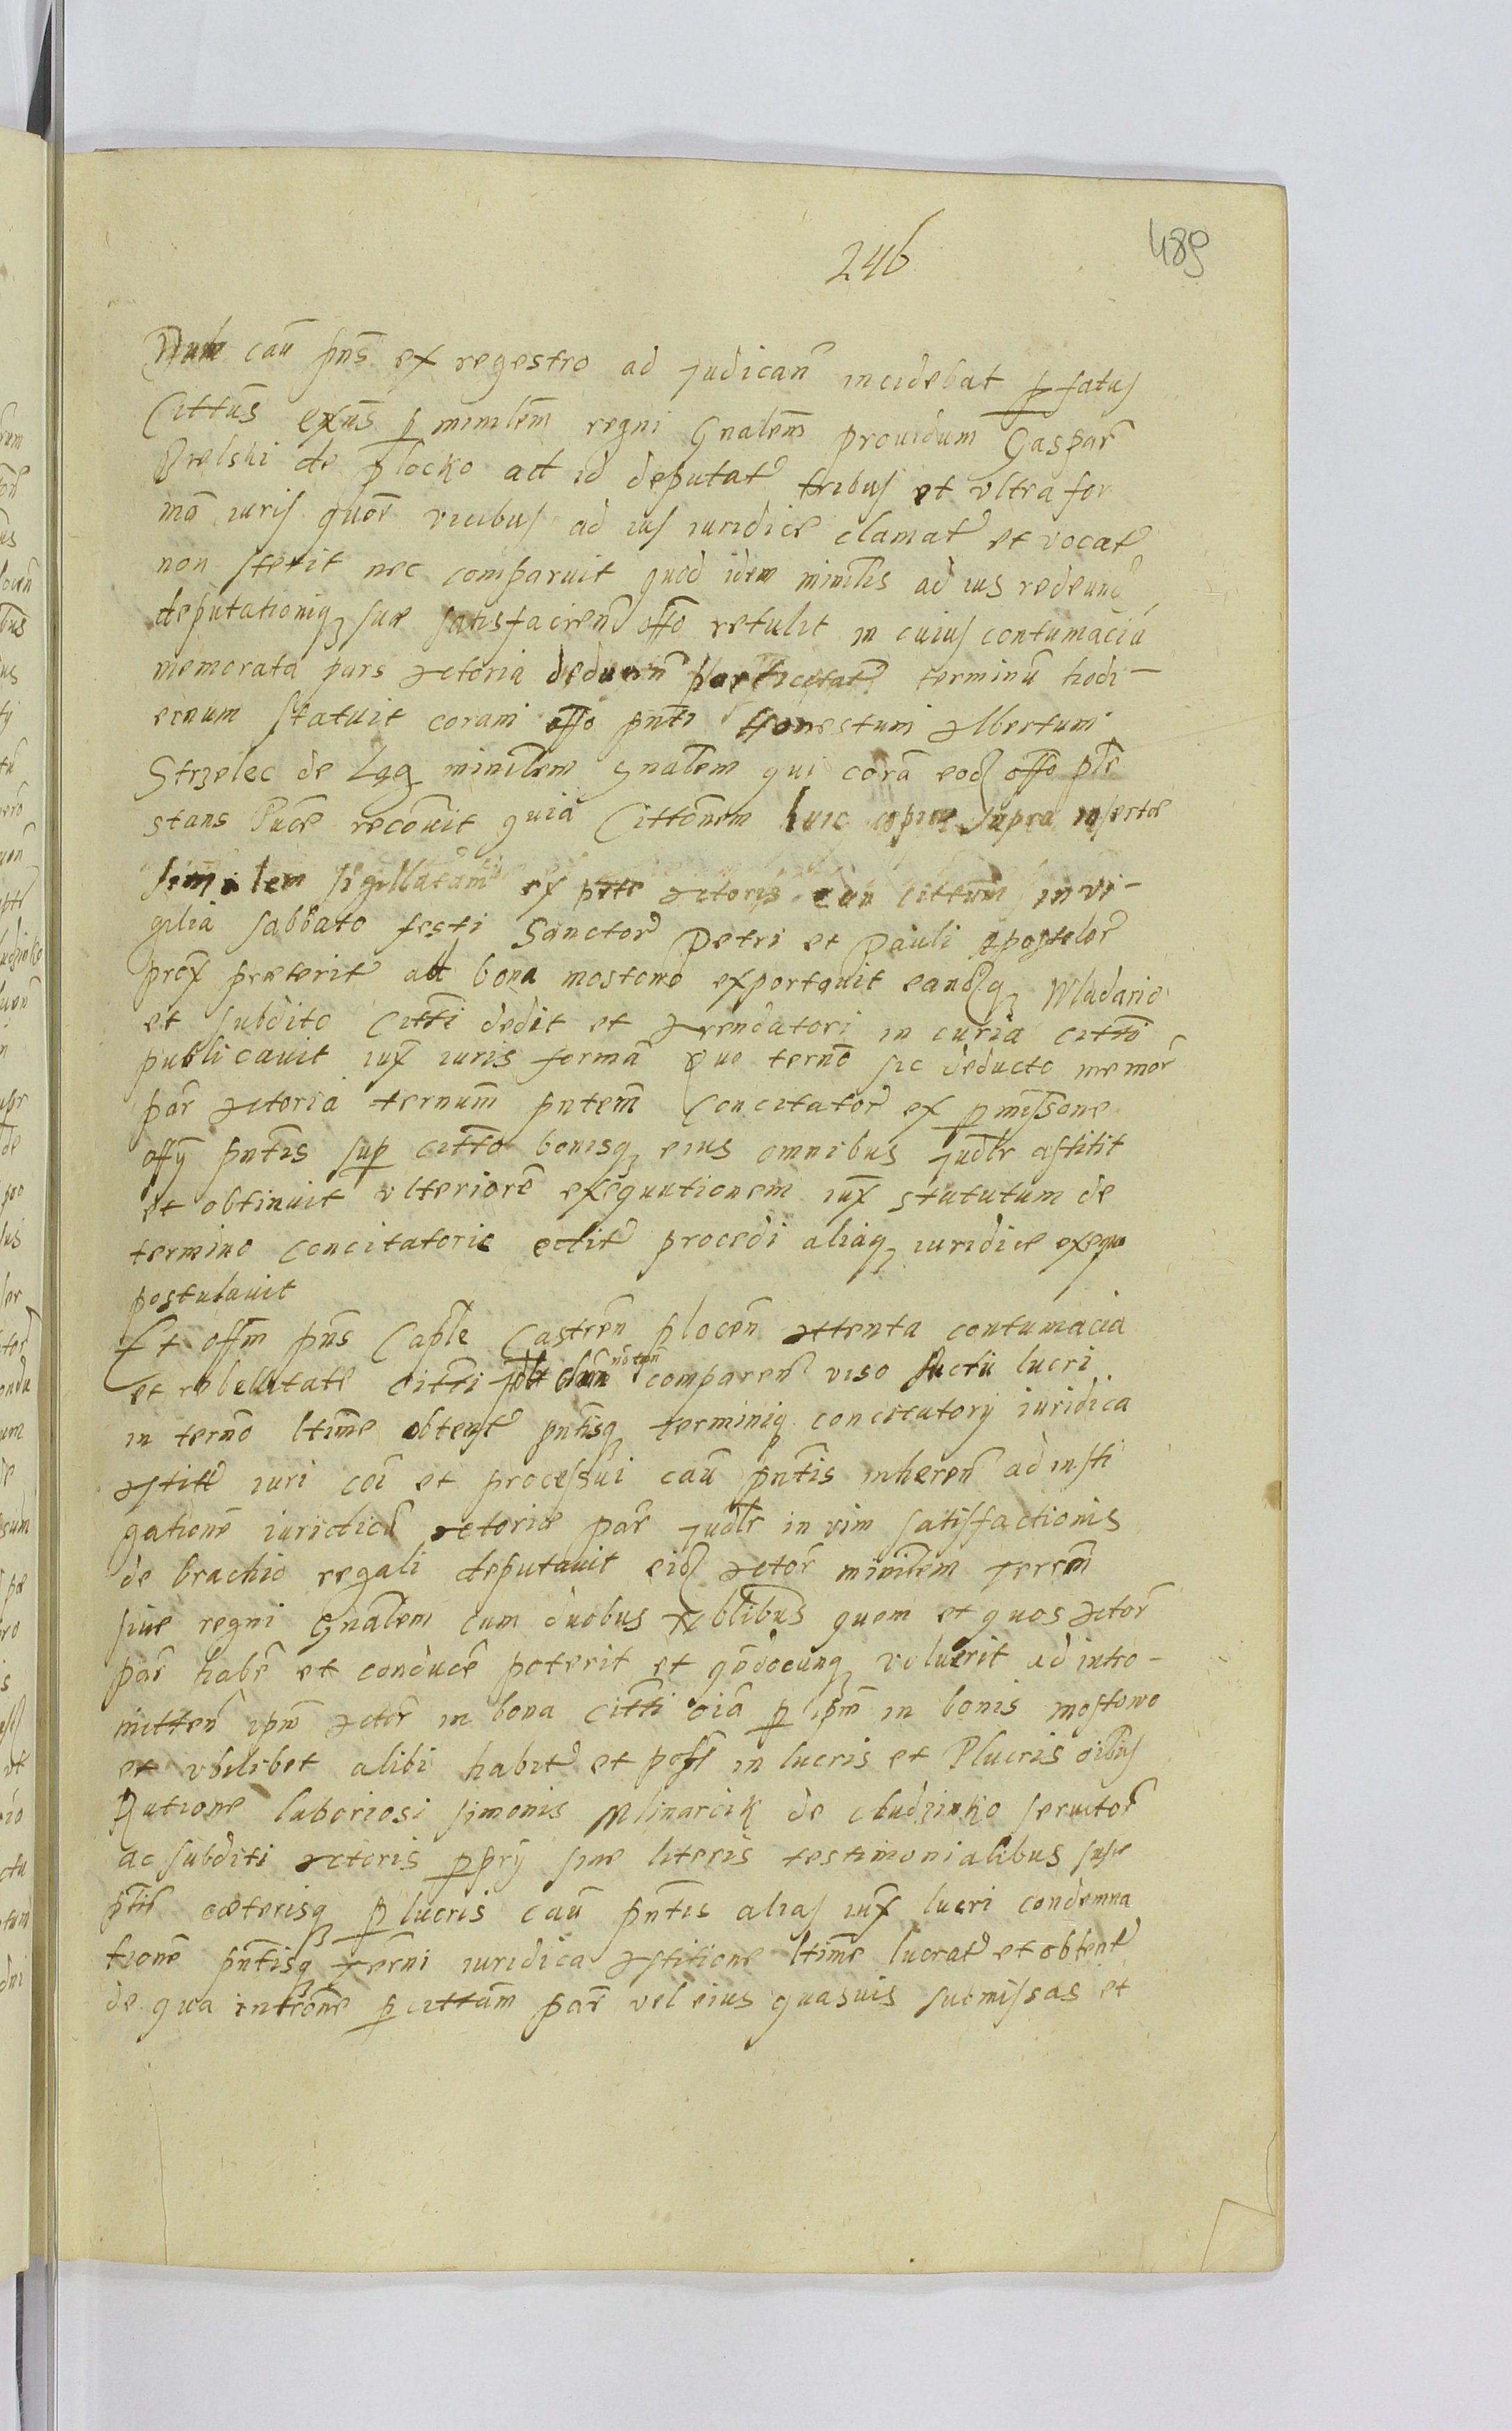 246
489
Dum cau pns ex regestro ad Judican incidebat p fatus
Cittus exns p minilem regni Gnalem prouidum Gaspar
Orelski de plocko ad id deputat tribus et vltra for
ma iuris quor vicibus ad ius iuridice clamat et vocat
non stetit nec comparuit quod idem minilis ad ius redeund
deputationiq sue satisfacien offo retulit in cuius contumacia
memorata pars Actoria terminu hodi-
ernum statuit coram offo pnti Honestum Albertum
Strzelec de Lag minilem gnalem qui cora eod offo ple
stans recouit quia Cittonem huic copiae supra insertae
similem sigillatam ex pte Actoris con cittum in vi-
gilia sabbato festi Sanctor Petri et Pauli Apostolor
prox praeterit ad bona mostowo exportauit eandq Wladario
et subdito Citti dedit et Arendatori in curia citti
publicauit iux iuris forma Quo terno sic deducto memor
par Actoria ternum pntem Concitator ex pmissone
offy pntis sup citto bonisq eius omnibus Judlr astitit
et obtinuit vlteriore exequutionem iux statutum de
termino concitatorie edit procedi aliaq iuridice exequi
postulauit
Et offm pns Caple Castren plocen Attenta contumacia
et rebellitate citti no tpn comparen viso luctu lucri
in terno ltime obtent pntisq terminiq concitatory iuridica
Astitt iuri coi et processui cau pntis inheren ad insti
gatione iuridica Actoriae par Judlr in vim satisfactionis
de brachio regali deputauit eid Actor minilem terrem
siue regni Gnalem cum duobus Noblibus quem et quos Actor
par habe et conduce poterit et qndocunq voluerit ad intro-
mitten ipm Actor in bona Citti oia p ipm in bonis mostowo
et vbilibet alibi habit et poss in lucris et Plucris oibus
Ratione laboriosi simonis Mlinarcik de Chudzinko seruitor
ac subditi Actoris ppry siue literis testimonialibus
caeterisq p lucris cau pntis alias iux lucri condemna
tione pntisq Terni iuridica Astitione ltime lucrat et obtent
de qua introne p cittam par vel eius quasuis submissas et